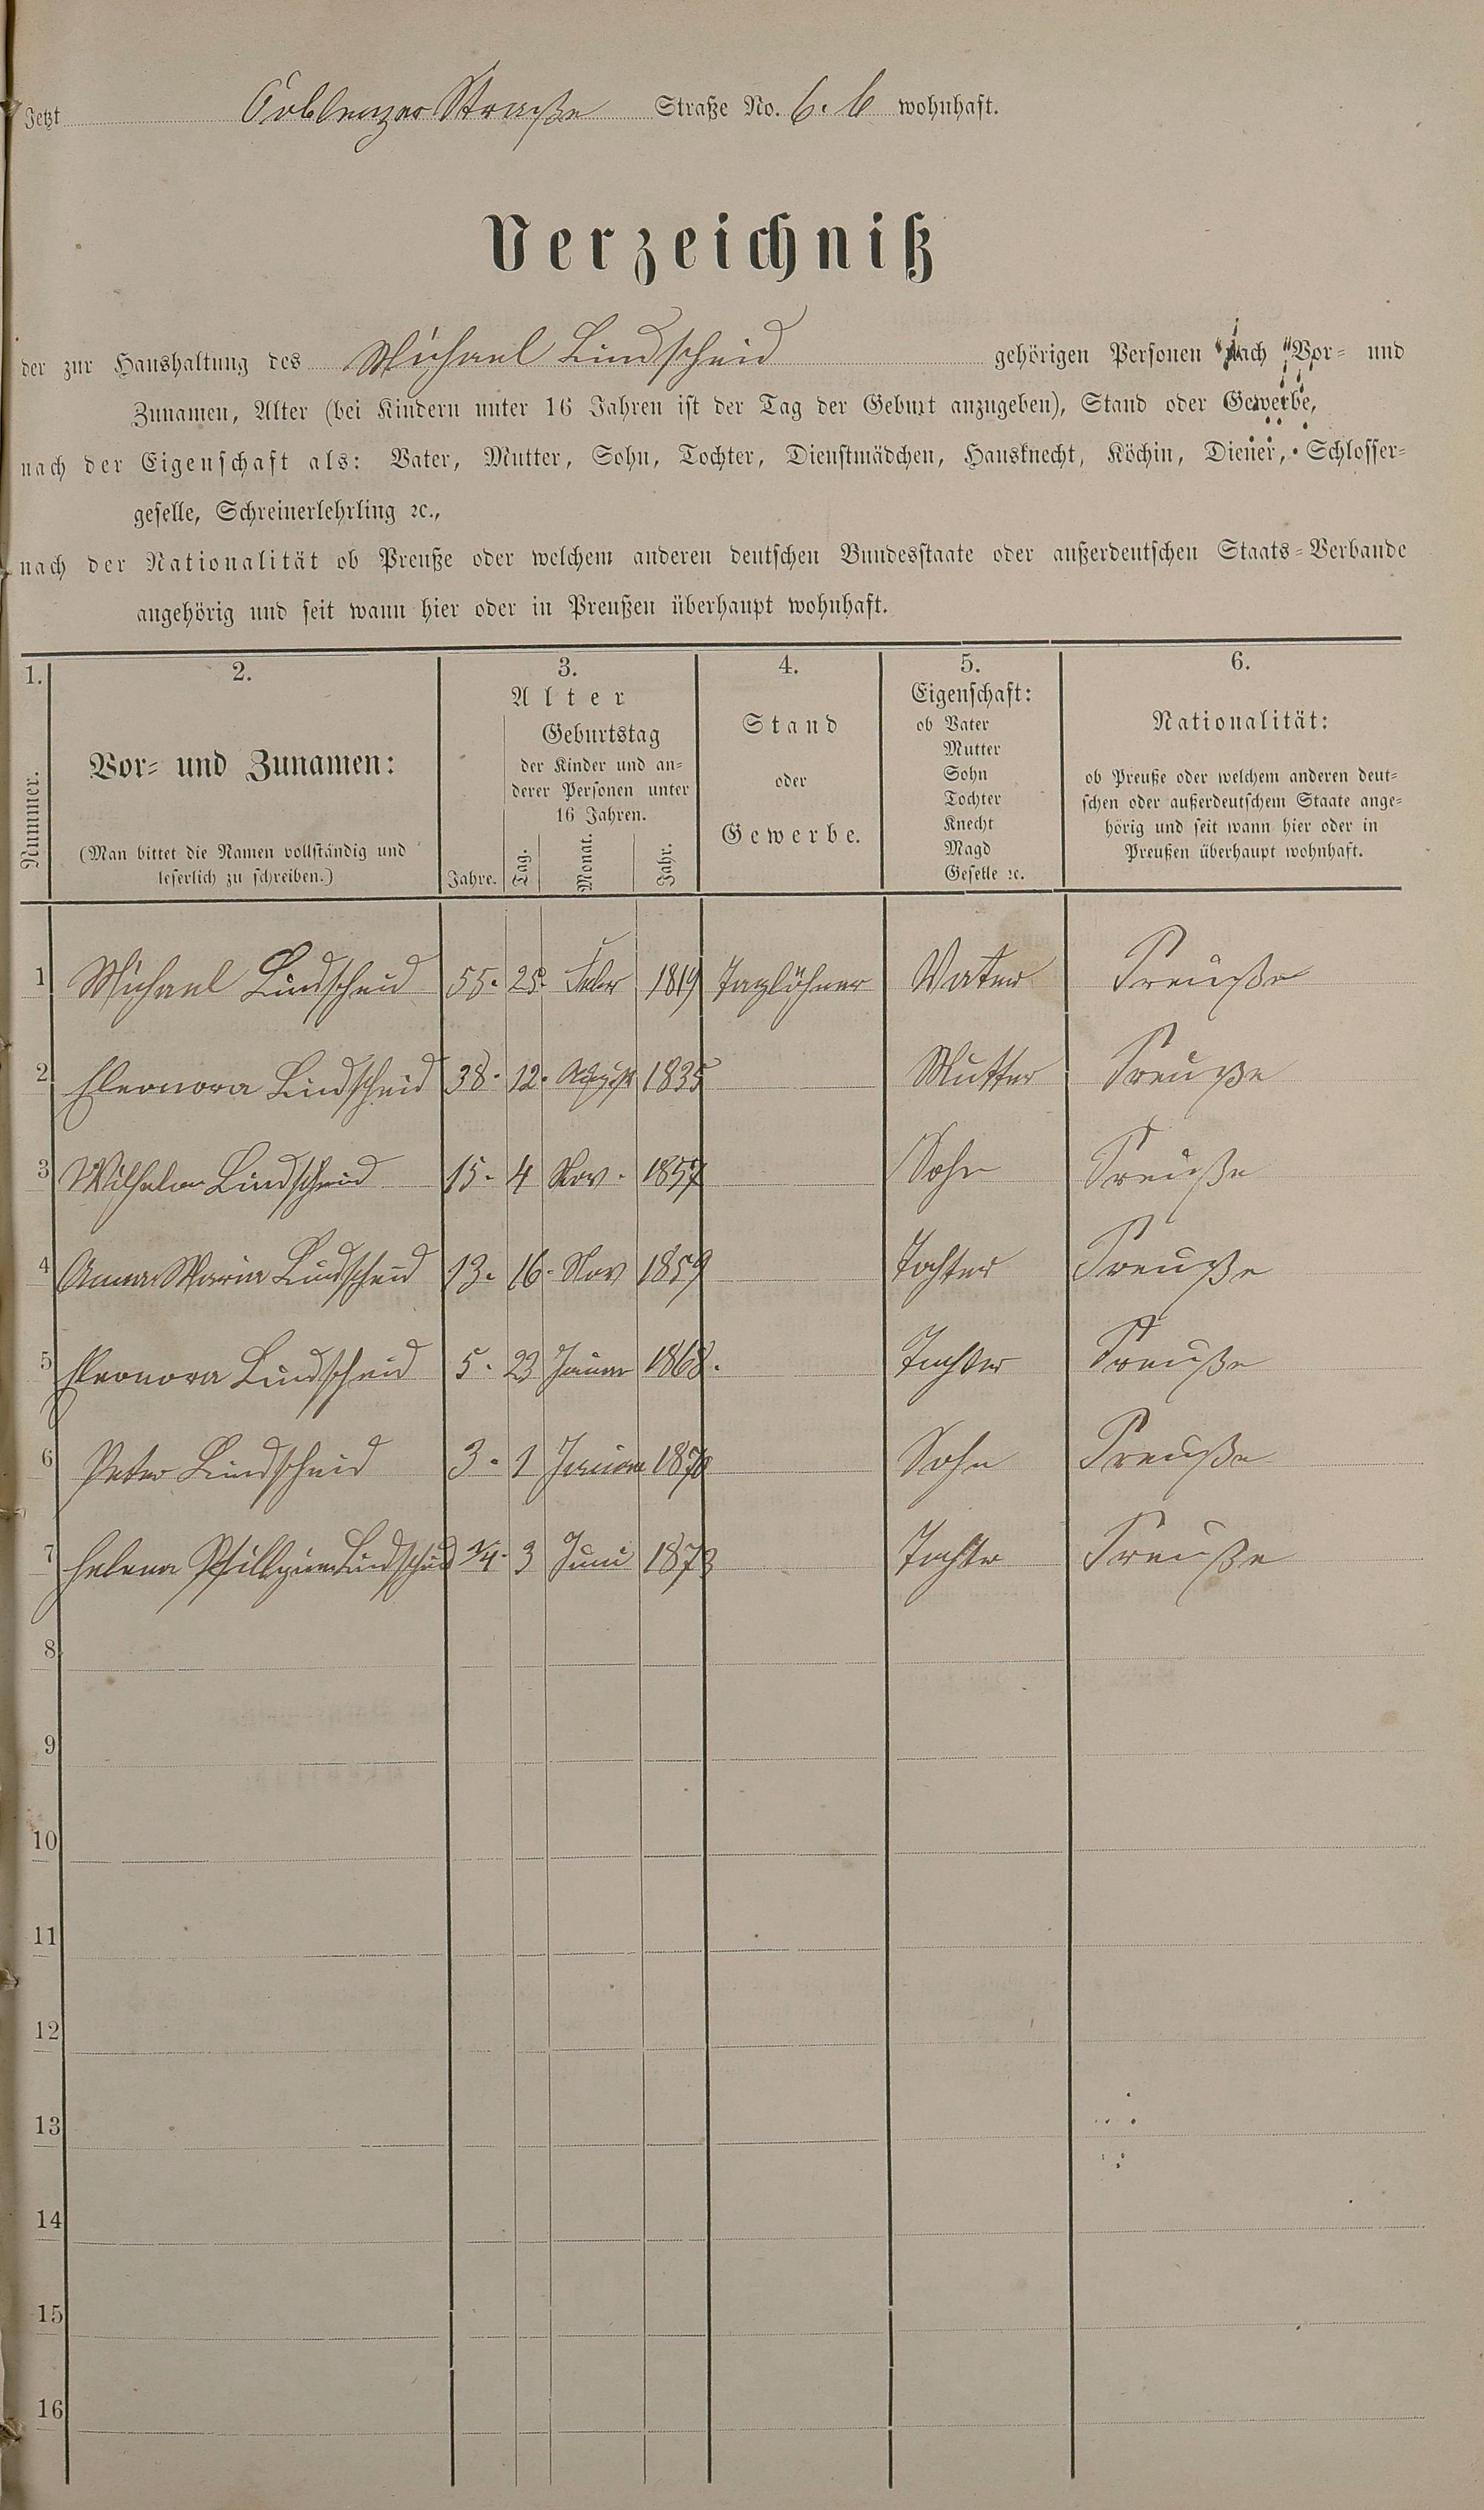 Jetzt Coblenzer Straße Straße No. 6. b wohnhaft.
Verzeichniß
der zur Haushaltung des Michael Lindscheid gehörigen Personen nach Vor- und
Zunamen, Alter (bei Kindern unter 16 Jahren ist der Tag der Geburt anzugeben), Stand oder Gewerbe,
nach der Eigenschaft als: Vater, Mutter, Sohn, Tochter, Dienstmädchen, Hausknecht, Köchin, Diener, Schlosser-
geselle, Schreinerlehrling ꝛc.,
nach der Nationalität ob Preuße oder welchem anderen deutschen Bundesstaate oder außerdeutschen Staats-Verbande
angehörig und seit wann hier oder in Preußen überhaupt wohnhaft.
1. 2. 3. 4. 5. 6.
Nummer.
Vor- und Zunamen:
(Man bittet die Namen vollständig und
leserlich zu schreiben.)
Alter
Jahre.
Geburtstag
der Kinder und an-
derer Personen unter
16 Jahren.
Tag. Monat. Jahr.
Stand
oder
Gewerbe.
Eigenschaft:
ob Vater
Mutter
Sohn
Tochter
Knecht
Magd
Geselle ꝛc.
Nationalität:
ob Preuße oder welchem anderen deut-
schen oder außerdeutschem Staate ange-
hörig und seit wann hier oder in
Preußen überhaupt wohnhaft.
1 Michael Lindscheid 55. 25. Febr 1819 Taglöhner Vater Preuße
2 Eleonora Lindscheid 38. 12. August 1835 Mutter Preuße
3 Wilhelm Lindscheid 15. 4 Nov. 1857 Sohn Preuße
4 Anna Maria Lindscheid 13. 16. Nov 1859 Tochter Preuße
5 Eleonora Lindscheid 5. 23 Januar 1868. Tochter Preuße
6 Peter Lindscheid 3. 1 Januar 1870 Sohn Preuße
7 Helena Lindscheid 3/4. 3 Juni 1873 Tochter Preuße
8
9
10
11
12
13
14
15
16